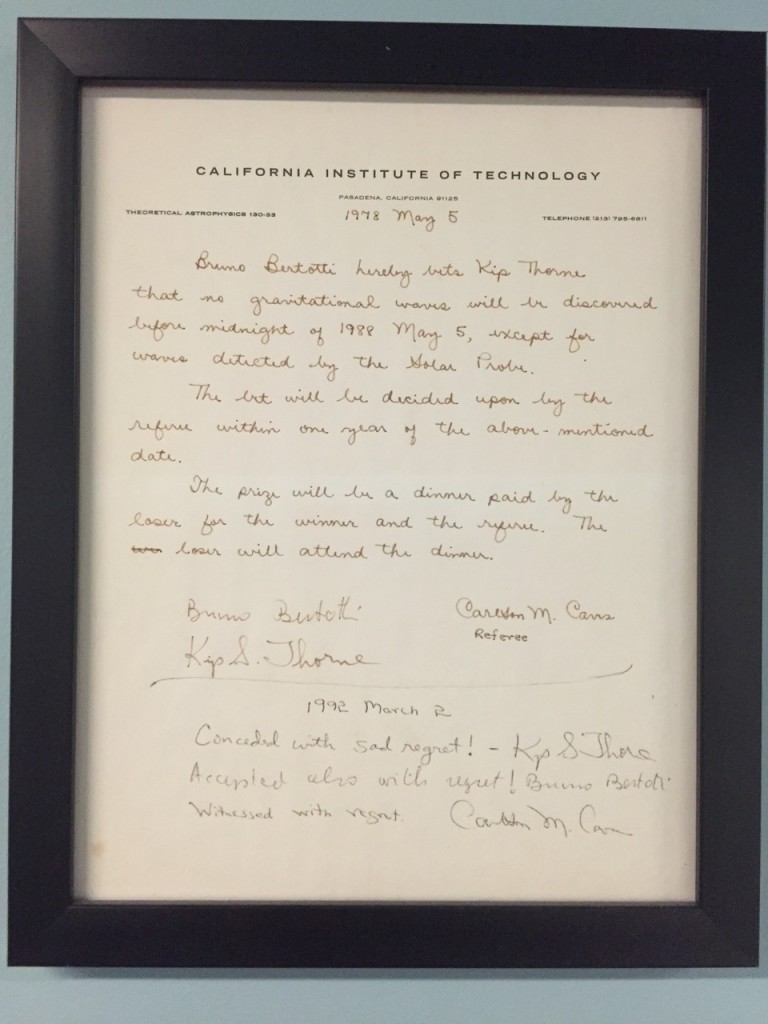 CALIFORNIA INSTITUTE OF TECHNOLOGY
PASADENA, CALIFORNIA 91125
THEORETICAL ASTROPHYSICS 130-33 1978 May 5 TELEPHONE (213) 795-6811
Bruno Bertotti hereby bets Kip Thorne
that no gravitational waves will be discovered
before midnight of 1988 May 5, except for
waves detected by the Solar Probe.
The bet will be decided upon by the
referee within one year of the above-mentioned
date.
The prize will be a dinner paid by the
loser for the winner and the referee. The
loser will attend the dinner.
Bruno Bertotti Carlton M. Caves
Referee
Kip S. Thorne
1992 March 2
Conceded with sad regret! - Kip S Thorne
Accepted also with regret! Bruno Bertotti
Witnessed with regret. Carlton M. Caves